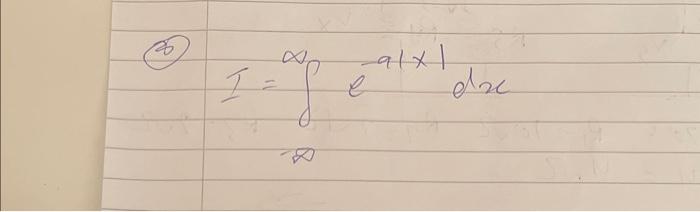 ③ I = ∫_{-∞}^{∞} e^{-a|x|} dx